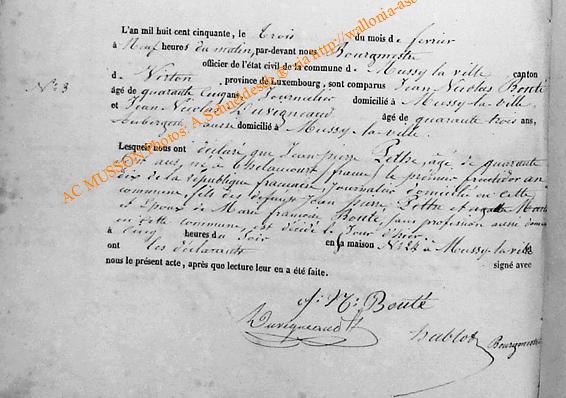 L'an mil huit cent cinquante, le trois du mois de février
à Neuf heures du matin, par-devant nous Bourgmestre
officier de l'état civil de la commune de Mussy la ville canton
d Virton, province de Luxembourg, sont comparus Jean Nicolas Bouté
N° 3
âgé de quarante cinq ans, Journalier domicilié à Mussy-la-ville
et Jean Nicolas Duvigneaud âgé de quarante trois ans,
Aubergiste, aussi domicilié à Mussy-la-ville
Lesquels nous ont déclaré que Jean pierre âgé de quarante
ans, né à (france) le premier fructidor an
dix de la république française, Journalier domicilié en cette
commune fils des défunts Jean pierre et
et Epoux de Marie françoise Bouté, sans profession aussi
en cette commune, est décédé le Jour d'hier
à Cinq heures du Soir en sa maison N° 24 à Mussy-la-ville
ont les déclarants signé avec
nous le présent acte, après que lecture leur en a été faite.
J. N. Bouté
Duvigneaud
Hablot Bourgmestre
AC MUSSON Photos: A. Schneidesch © via http://wallonia-as